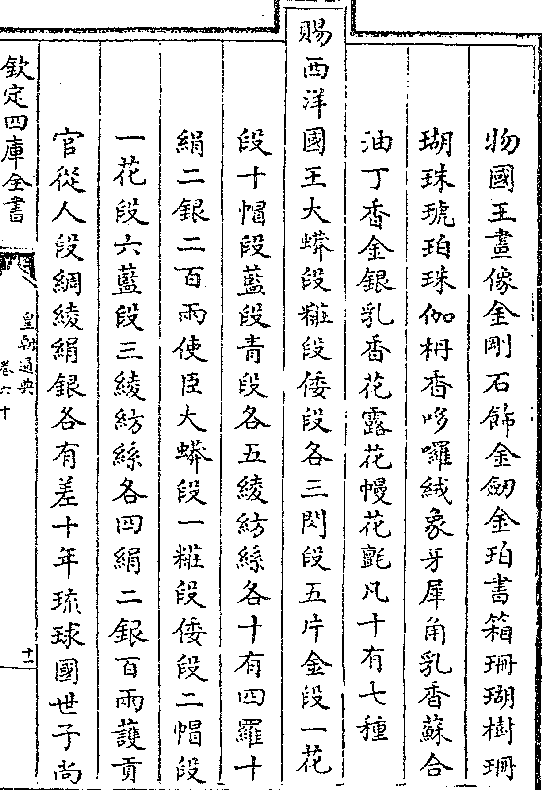 物國王畫像金剛石飾金劒金珀書箱珊瑚樹珊
瑚珠琥珀珠伽枏香哆囉絨象牙犀角乳香蘇合
油丁香金銀乳香花露花幔花氊凡十有七種
賜西洋國王大蟒段粧段倭段各三閃段五片金段一花
段十帽段藍段青段各五綾紡絲各十有四羅十
絹二銀二百兩使臣大蟒段一粧段倭段二帽段
一花段六藍段三綾紡絲各四絹二銀百兩護貢
官從人段綢綾絹銀各有差十年琉球國世子尚
欽定四庫全書
皇朝通典
卷六十
十一